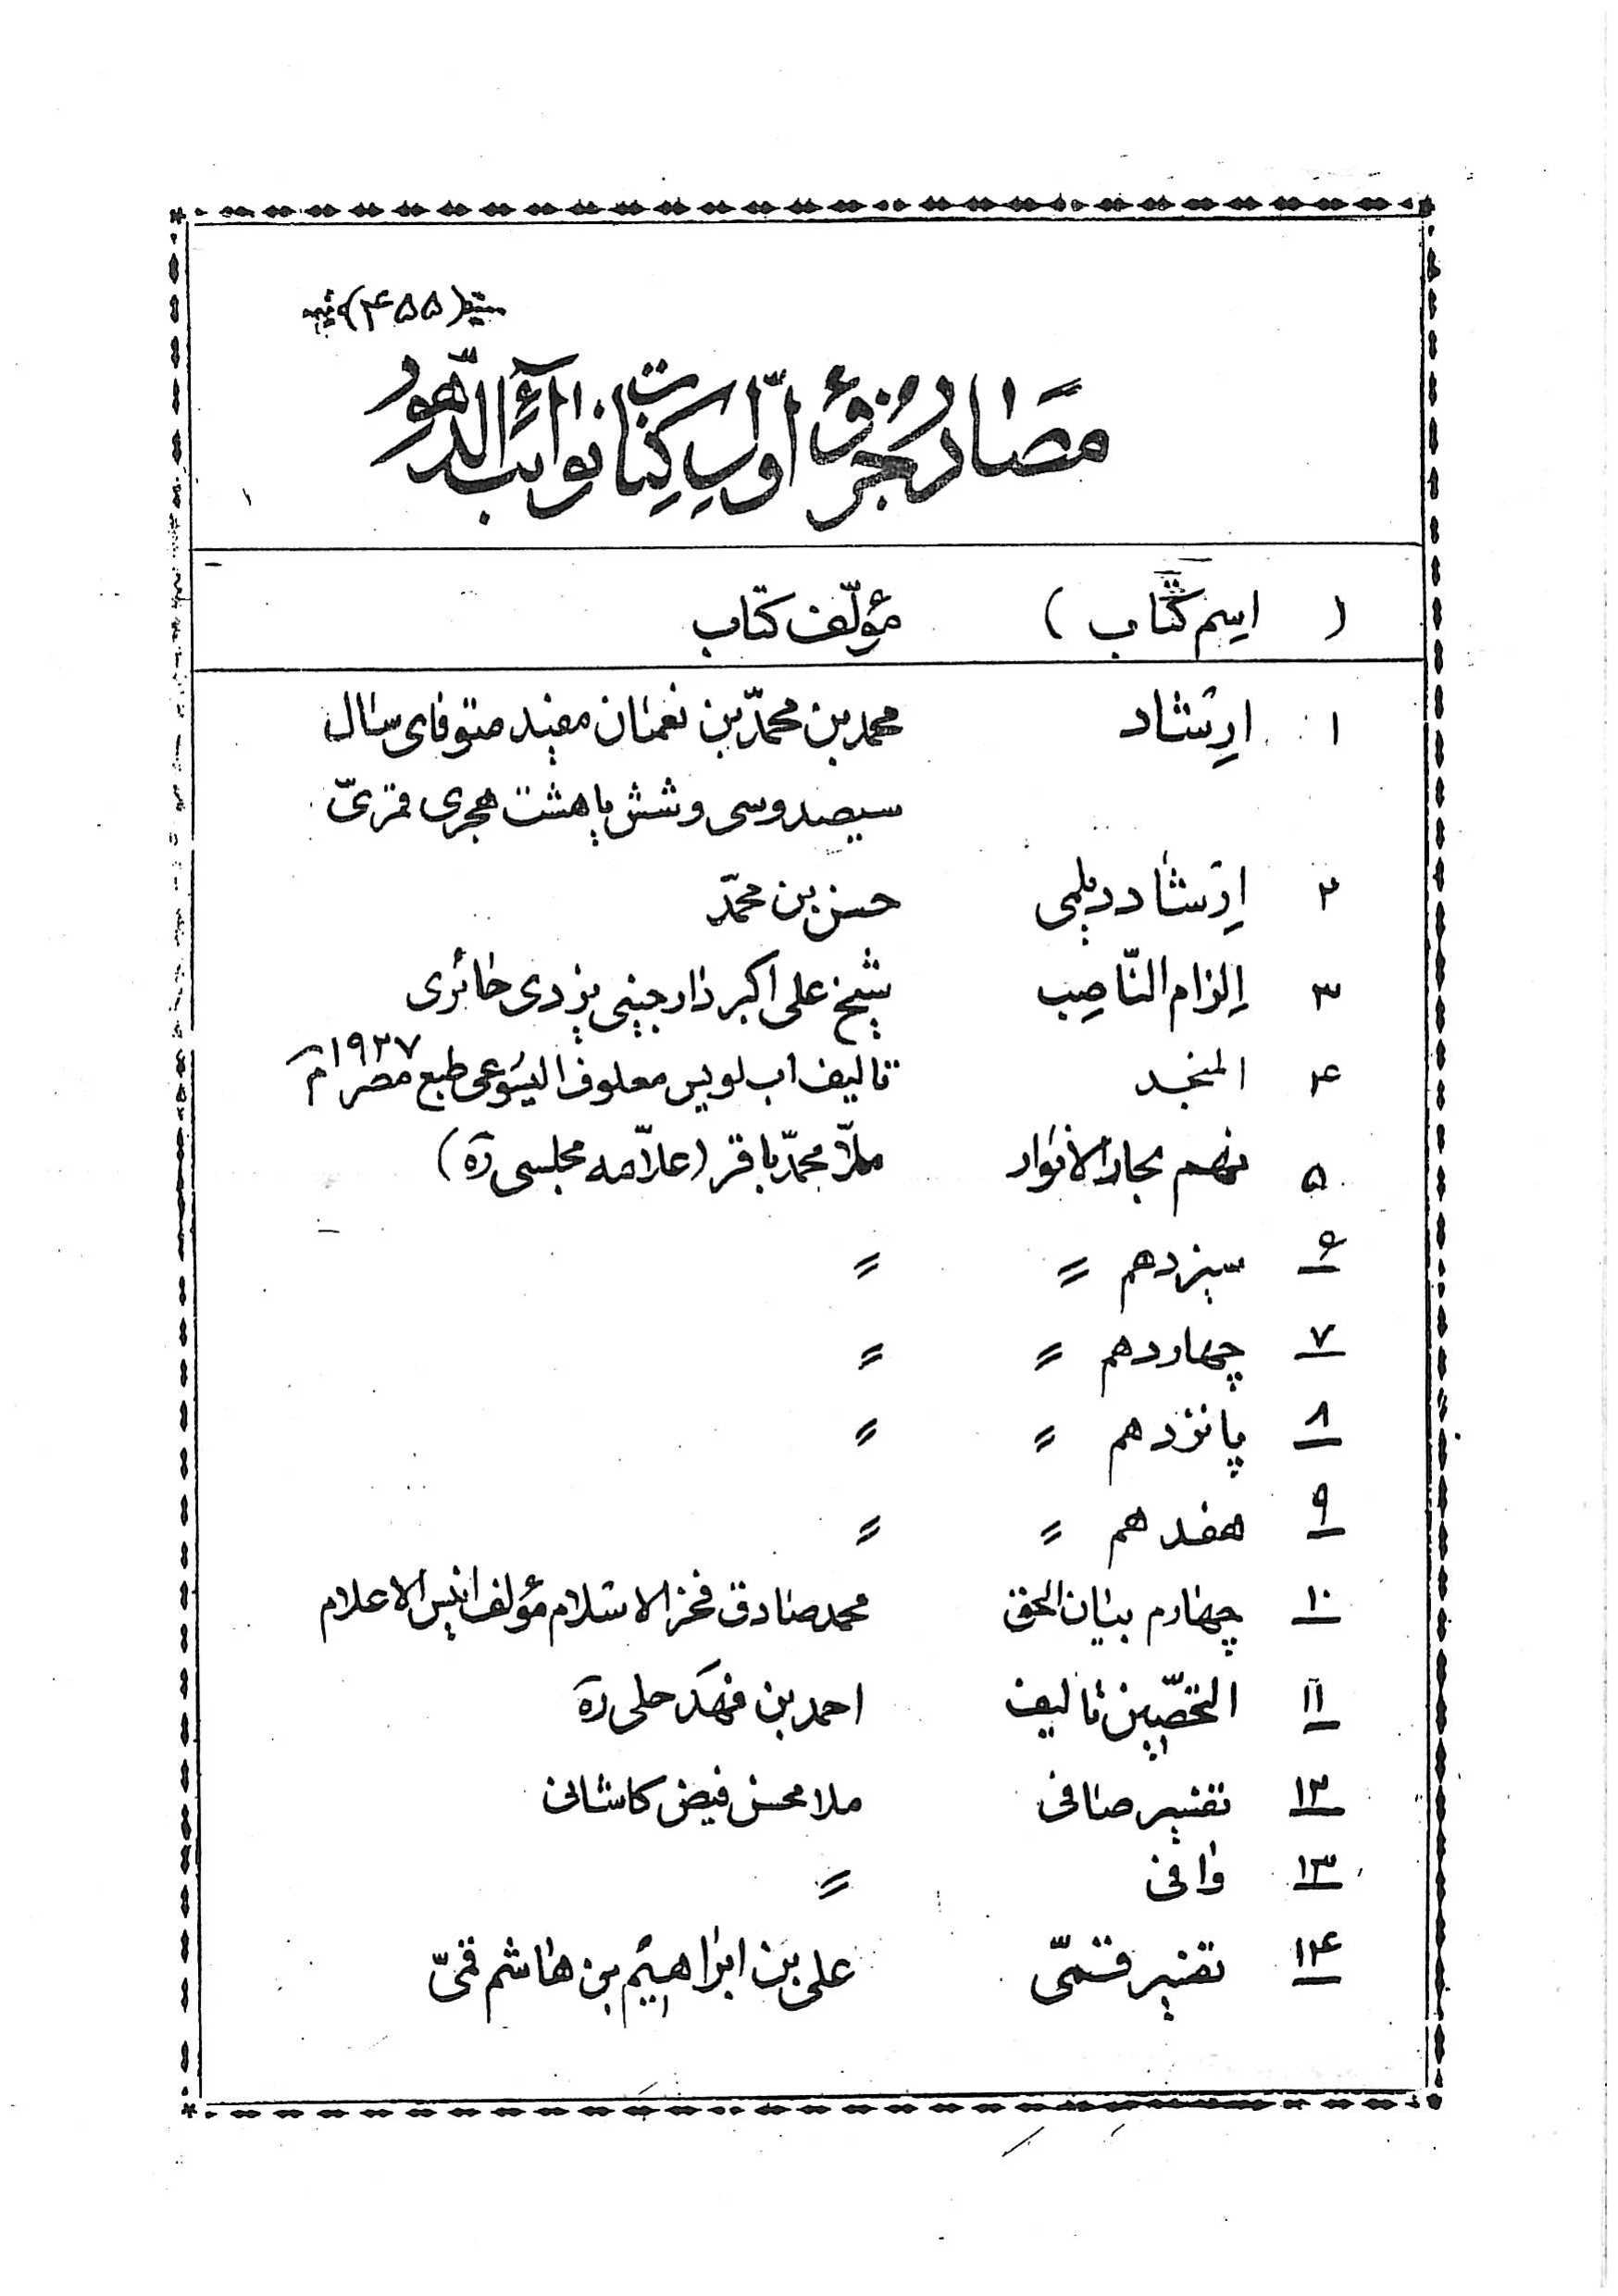 (۴۵۵)
مصادر جزؤ اول کتاب نوائب الدهور
( اسم کتاب ) مؤلّف کتاب
۱ ارشاد محمد بن محمّد بن نعمان مفید متوفای سال
سیصد و سی و شش یا هشت هجری قمریّ
۲ اِرشاد دیلمی حسن بن محمّد
۳ اِلزام النّاصِب شیخ علی اکبر زارجینی یزدی حائری
۴ المنجد تالیف اب لویس معلوف الیسوعی طبع مصر ۱۹۳۷ م
۵ نهم بحار الانوار ملّا محمّد باقر (علاّمه مجلسی ره)
۶ سیزدهم〃 〃
۷ چهاردهم 〃 〃
۸ پانزدهم 〃 〃
۹ هفدهم 〃 〃
۱۰ چهارم بیان الحق محمد صادق فخر الاسلام مؤلف انیس الاعلام
۱۱ التحصّین تالیف احمد بن فهد حلی ره
۱۲ تفسیر صافی ملا محسن فیض کاشانی
۱۳ وافی 〃
۱۴ تفسیر قمّی علی بن ابراهیم بن هاشم قمیّ